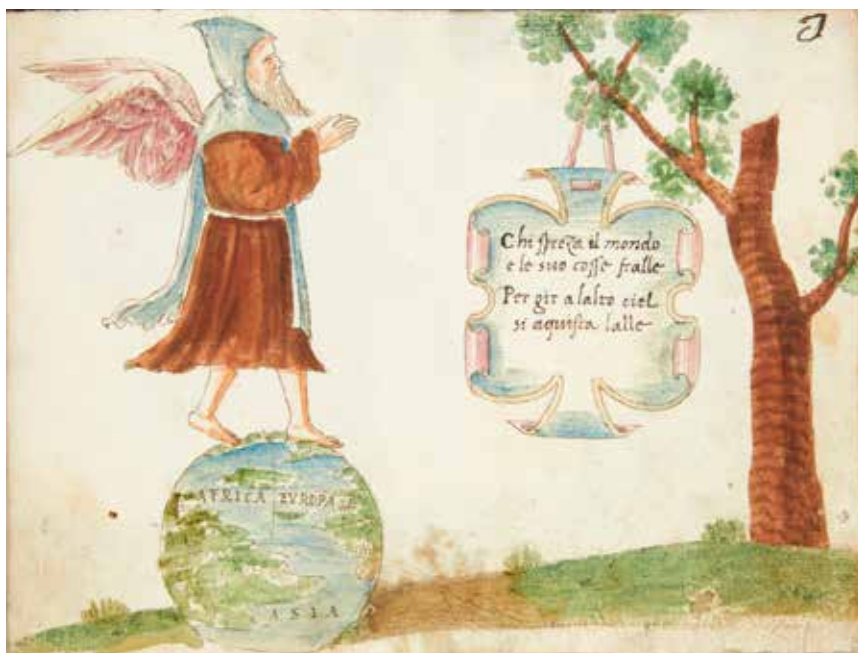 Chi spreza il mondo
e le suo cosse fralle
Per gir a lalto ciel
si aquista lalle
AFRICA EVROPA
ASIA